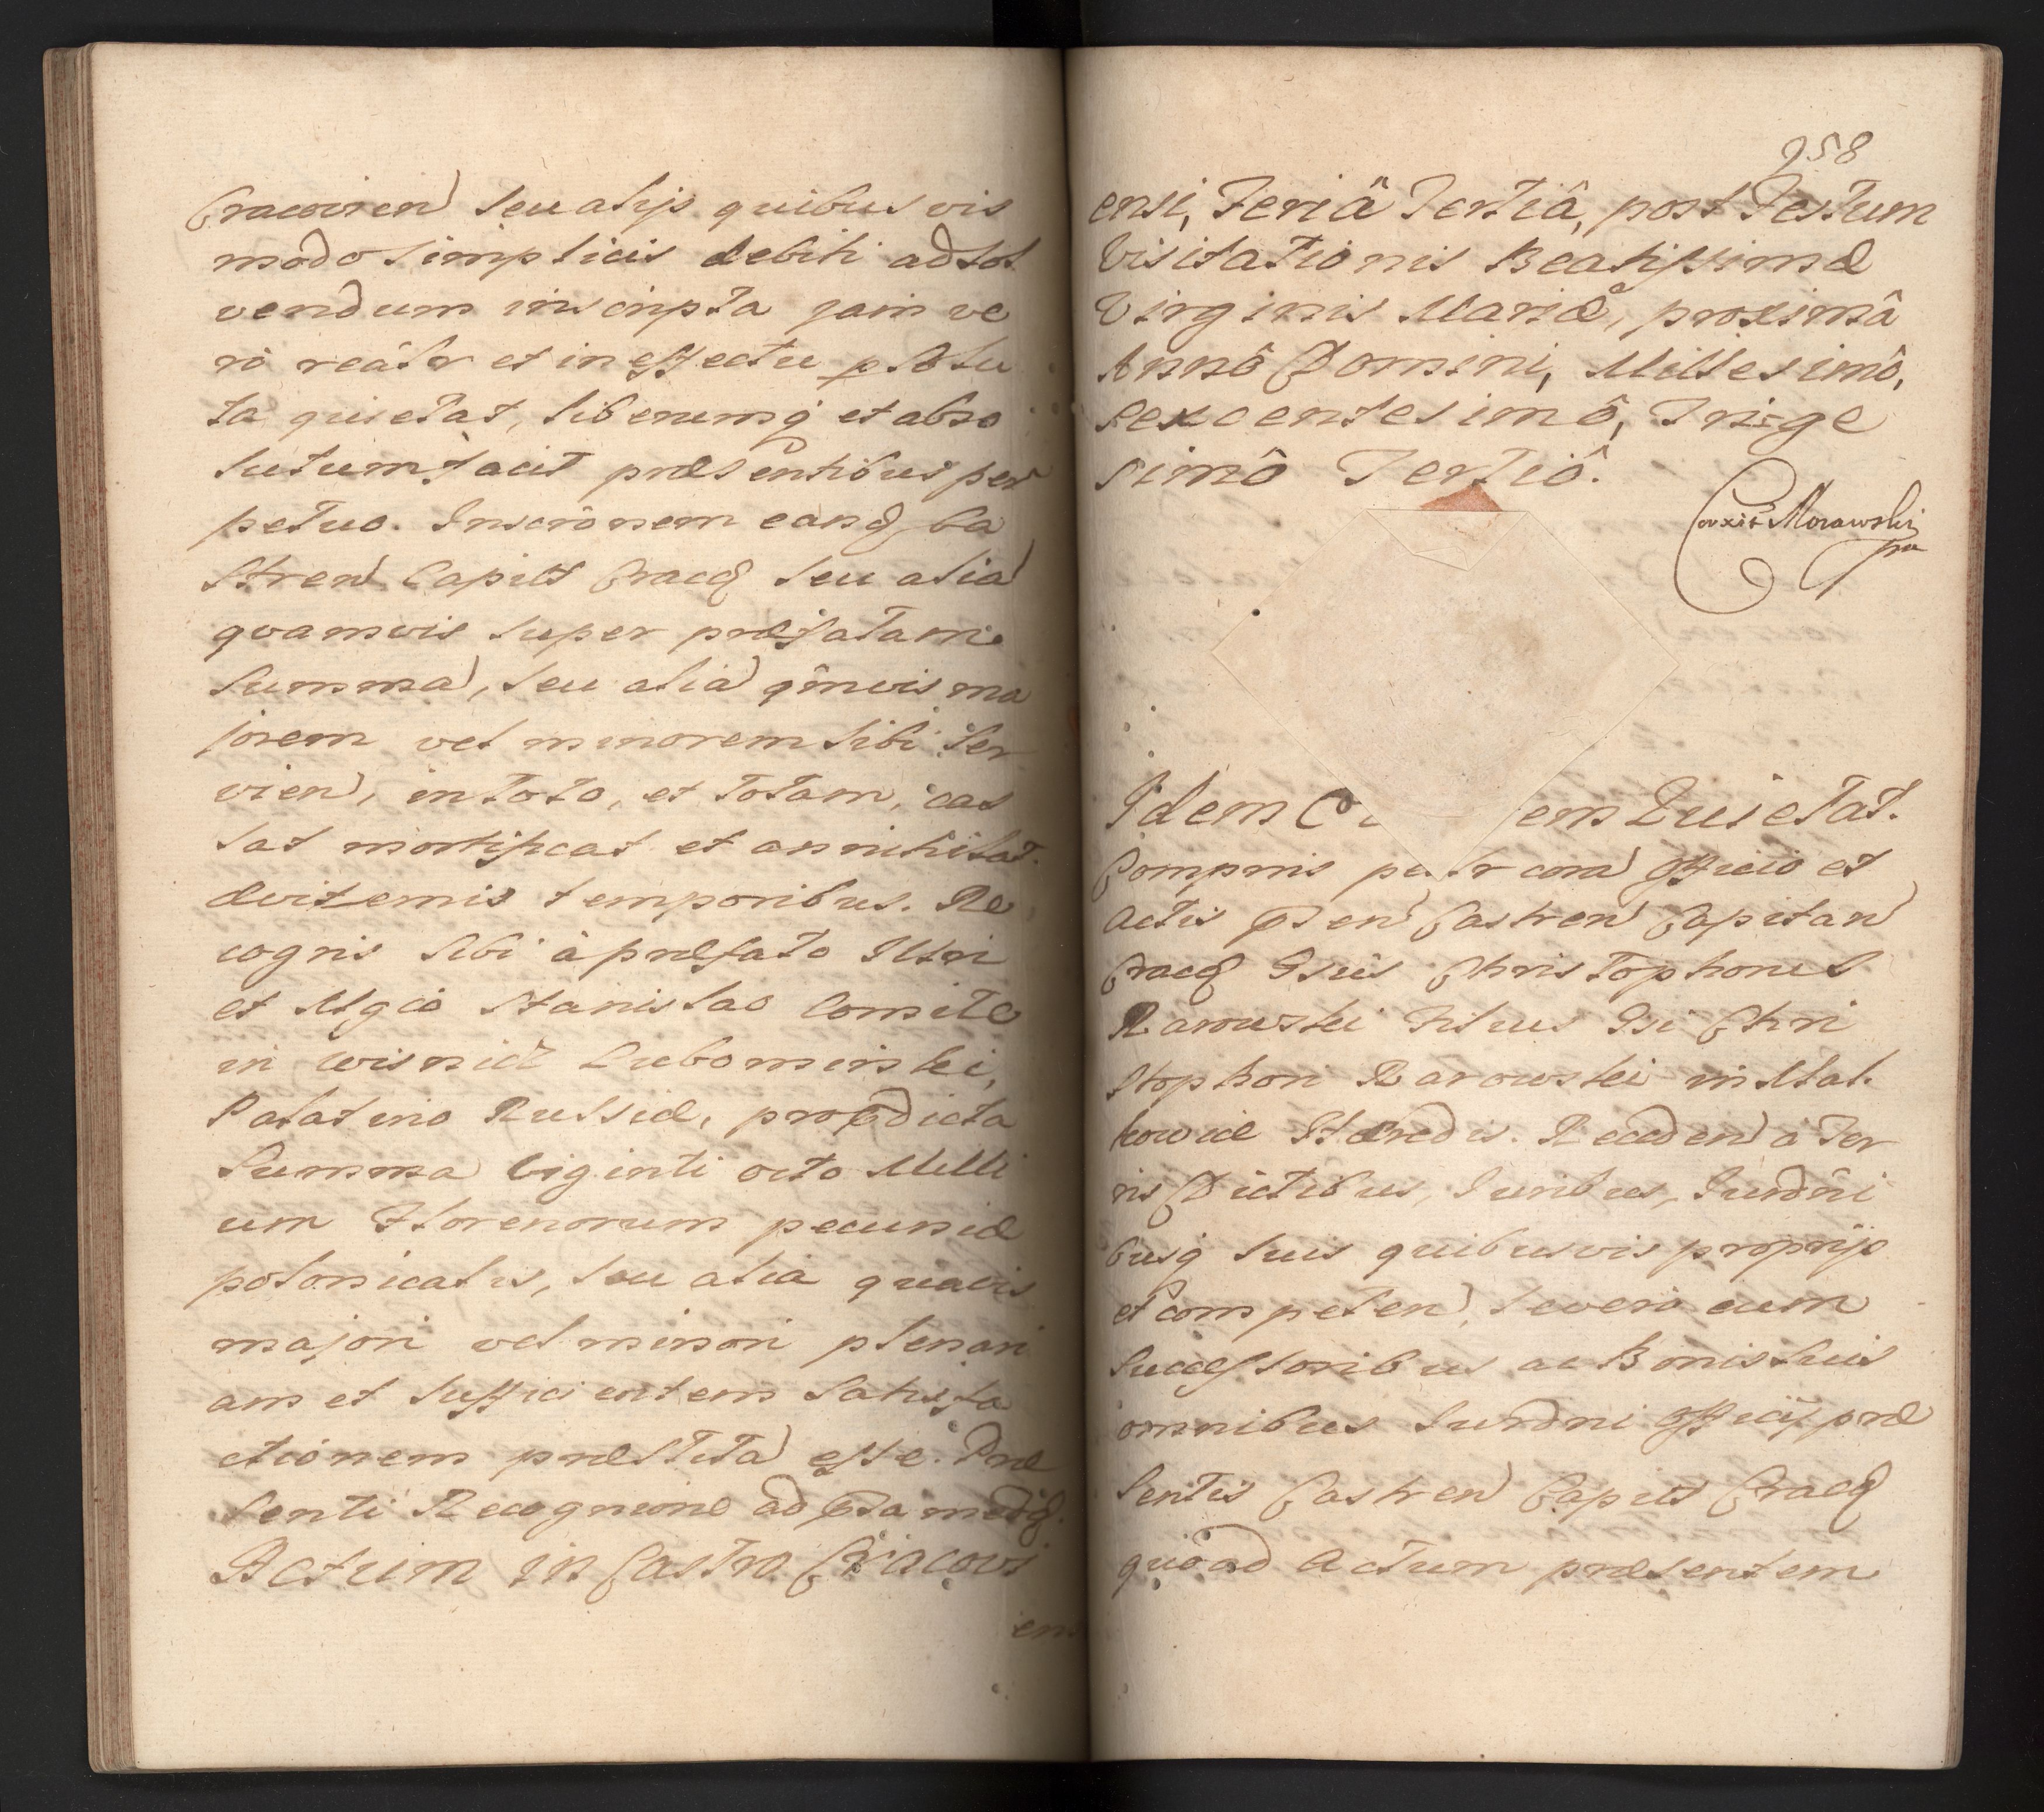 Cracovien seu alijs quibus vis
modo simplicis debiti adsol
vendum inscripta jam ve
ro reâlr et in effectu psolu
ta quietat, liberumq et abso
lutum facit præsentibus per
petuo. Inscrônem eandq Ca
stren Capits Cracq seu alia
quamvis super præfatam
Summa, seu alia qmvis ma
jorem vel minorem sibi ser
vien, in toto, et totam, cas
sat mortificat et annihilat
æviternis temporibus. Re
cognis sibi à præfato Illri
et Mgco Stanislao Comite
in Wisnicz Lubomirski,
Palatino Russiæ, pro prædicta
Summa Viginti octo Milli
um Florenorum pecuniæ
polonicalis, seu alia quavis
majori vel minori plenari
am et sufficientem satisfa
ctionem præstita esse. Præ
senti Recognione ad præa mediq.
Actum in Castro Cracovi
ens
958
ensi, Feriâ Tertiâ, post Festum
Visitationis Beatissimæ
Virginis Mariæ, proximâ
Annô Domini, Millesimô,
Sexcentesimô, Trige
simô Tertiô.
Corxit Morawski
mp
Idem C em Quietat.
Compnis p lr cora Officio et
Actis præsen Castren Capitan
Cracq Gsus Christophorus
Rarowski Filius Gsi Chri
stophori Rarowski in Mal
kowice Hæredis. Receden a Ter
ris Dictibus, Juribus, Jurdni
busq suis quibusvis proprijs
et competen, severo cum
Successoribus ac Bonis suis
omnibus Jurdni Officij præ
sentis Castren Capits Cracq
quo ad Actum præsentem